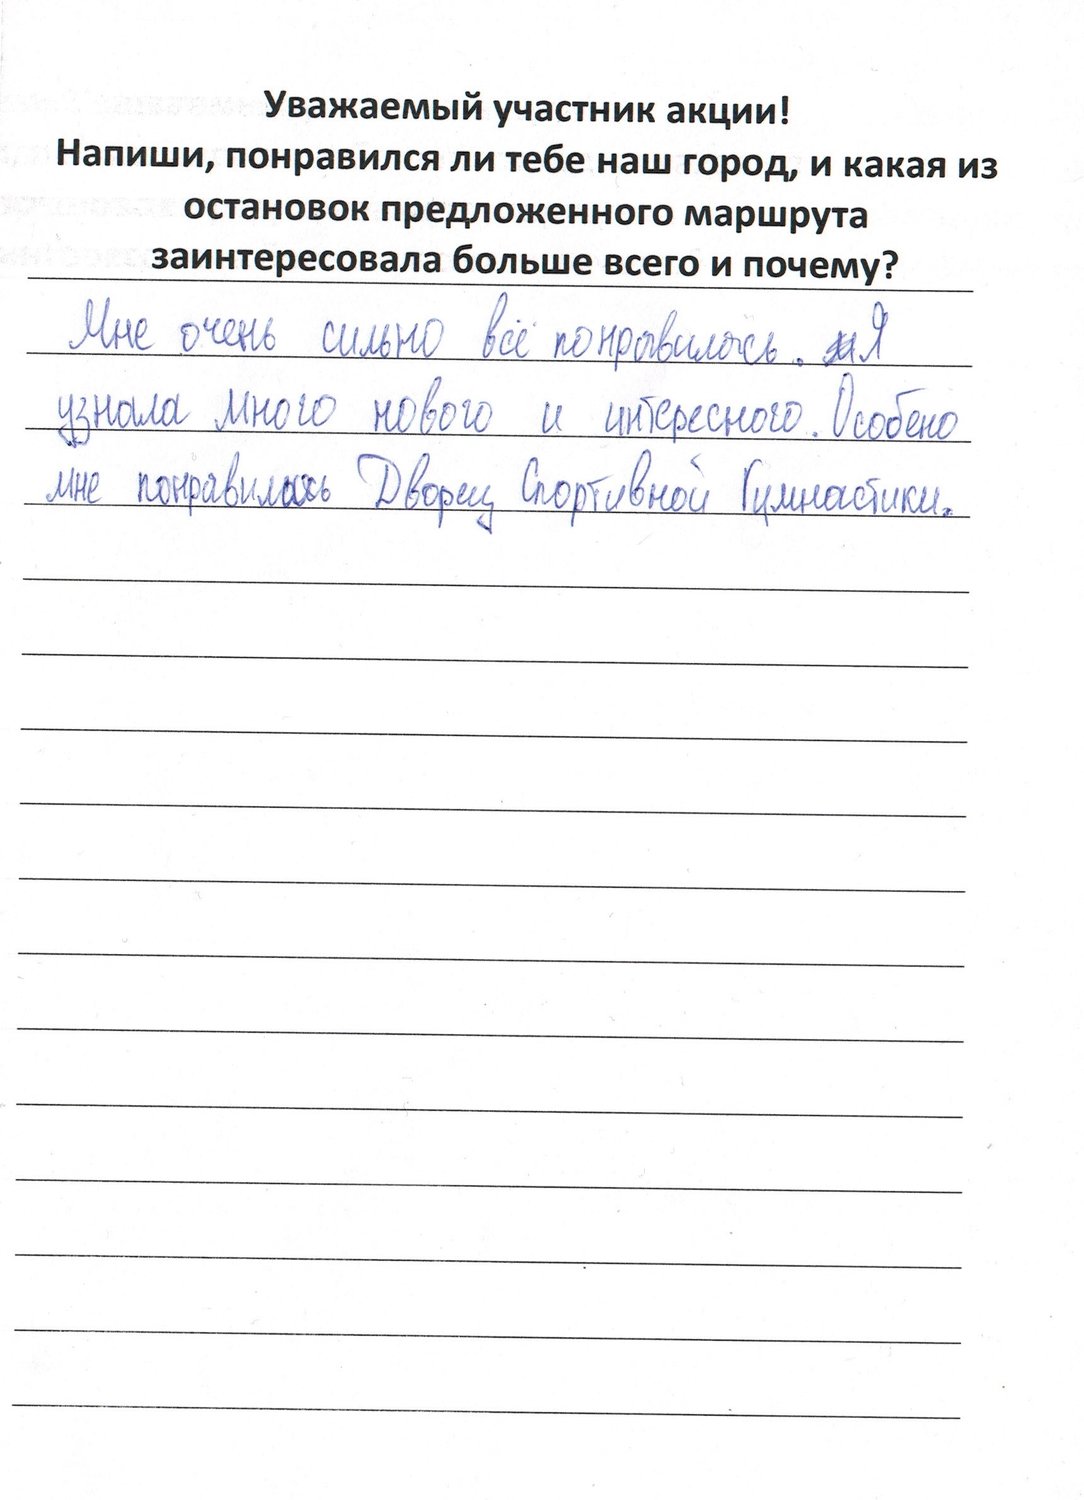 Уважаемый участник акции!
Напиши, понравился ли тебе наш город, и какая из
остановок предложенного маршрута
заинтересовала больше всего и почему?
Мне очень сильно всё понравилось. Я
узнала много нового и интересного. Особено
мне понравилась Дворец Спортивной Гимнастики.